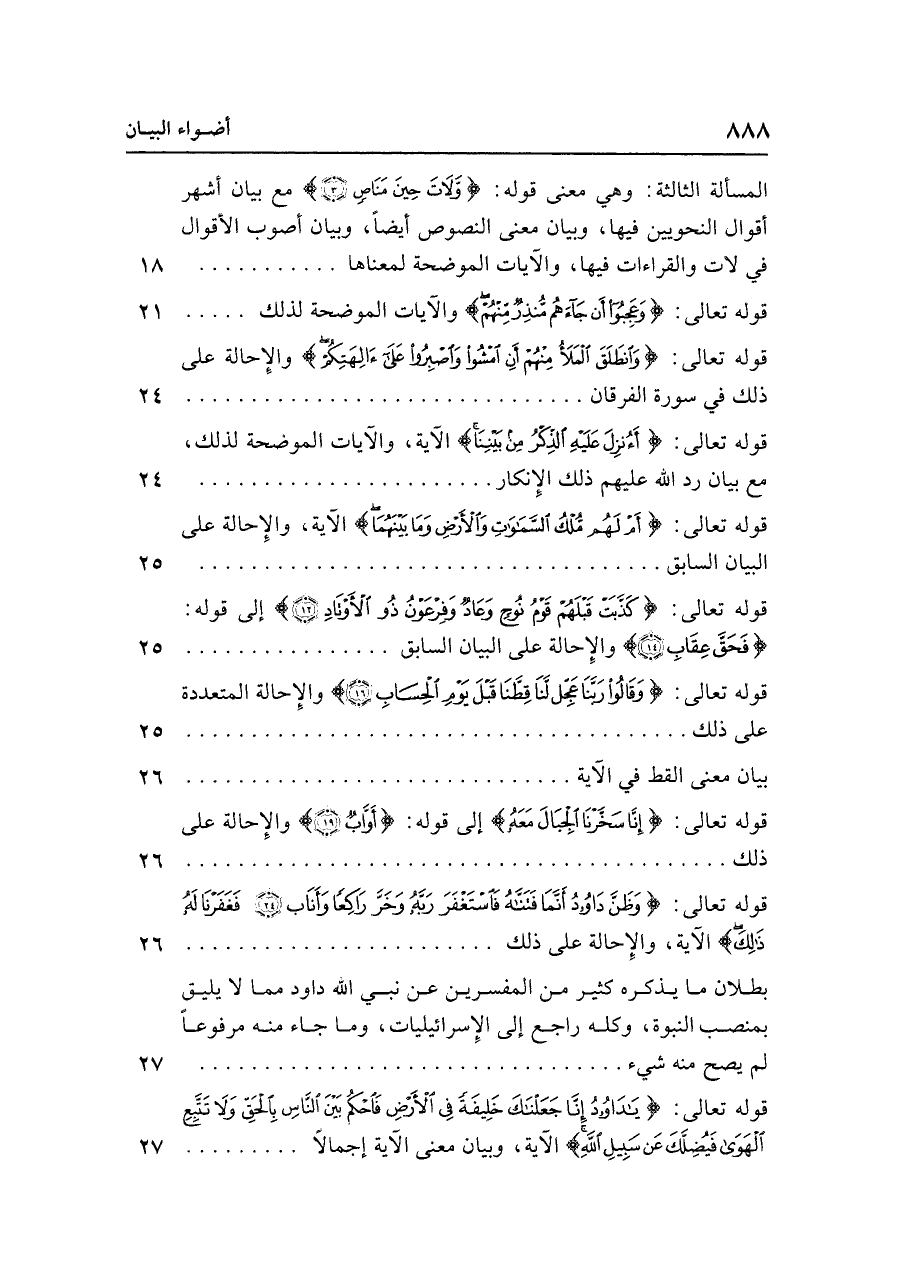 ٨٨٨ أضواء البيان
المسألة الثالثة: وهي معنى قوله: ﴿وَّلَاتَ حِينَ مَنَاصٍ ٣﴾ مع بيان أشهر
أقوال النحويين فيها، وبيان معنى النصوص أيضاً، وبيان أصوب الأقوال
في لات والقراءات فيها، والآيات الموضحة لمعناها . . . . . . . . . . . ١٨
قوله تعالى: ﴿وَعَجِبُوٓا۟ أَن جَآءَهُم مُّنذِرٌ مِّنْهُمْۖ﴾ والآيات الموضحة لذلك . . . . . ٢١
قوله تعالى: ﴿وَٱنطَلَقَ ٱلْمَلَأُ مِنْهُمْ أَنِ ٱمْشُوا۟ وَٱصْبِرُوا۟ عَلَىٰٓ ءَالِهَتِكُمْۖ﴾ والإحالة على
ذلك في سورة الفرقان . . . . . . . . . . . . . . . . . . . . . . . . . . . . . . . ٢٤
قوله تعالى: ﴿أَءُنزِلَ عَلَيْهِ ٱلذِّكْرُ مِنۢ بَيْنِنَاۚ﴾ الآية، والآيات الموضحة لذلك،
مع بيان رد الله عليهم ذلك الإنكار . . . . . . . . . . . . . . . . . . . . . . . ٢٤
قوله تعالى: ﴿أَمْ لَهُم مُّلْكُ ٱلسَّمَٰوَٰتِ وَٱلْأَرْضِ وَمَا بَيْنَهُمَاۖ﴾ الآية، والإحالة على
البيان السابق . . . . . . . . . . . . . . . . . . . . . . . . . . . . . . . . . . . . ٢٥
قوله تعالى: ﴿كَذَّبَتْ قَبْلَهُمْ قَوْمُ نُوحٍ وَعَادٌ وَفِرْعَوْنُ ذُو ٱلْأَوْتَادِ ١٢﴾ إلى قوله:
﴿فَحَقَّ عِقَابِ ١٤﴾ والإحالة على البيان السابق . . . . . . . . . . . . . . . . ٢٥
قوله تعالى: ﴿وَقَالُوا۟ رَبَّنَا عَجِّل لَّنَا قِطَّنَا قَبْلَ يَوْمِ ٱلْحِسَابِ ١٦﴾ والإحالة المتعددة
على ذلك . . . . . . . . . . . . . . . . . . . . . . . . . . . . . . . . . . . . . . . ٢٥
بيان معنى القط في الآية . . . . . . . . . . . . . . . . . . . . . . . . . . . . . . ٢٦
قوله تعالى: ﴿إِنَّا سَخَّرْنَا ٱلْجِبَالَ مَعَهُۥ﴾ إلى قوله: ﴿أَوَّابٌ ١٩﴾ والإحالة على
ذلك . . . . . . . . . . . . . . . . . . . . . . . . . . . . . . . . . . . . . . . . . . ٢٦
قوله تعالى: ﴿وَظَنَّ دَاوُۥدُ أَنَّمَا فَتَنَّٰهُ فَٱسْتَغْفَرَ رَبَّهُۥ وَخَرَّ رَاكِعًا وَأَنَابَ ٢٤ فَغَفَرْنَا لَهُۥ
ذَٰلِكَۖ﴾ الآية، والإحالة على ذلك . . . . . . . . . . . . . . . . . . . . . . . . ٢٦
بطلان ما يذكره كثير من المفسرين عن نبي الله داود مما لا يليق
بمنصب النبوة، وكله راجع إلى الإسرائيليات، وما جاء منه مرفوعاً
لم يصح منه شيء . . . . . . . . . . . . . . . . . . . . . . . . . . . . . . . . . ٢٧
قوله تعالى: ﴿يَٰدَاوُۥدُ إِنَّا جَعَلْنَٰكَ خَلِيفَةً فِى ٱلْأَرْضِ فَٱحْكُم بَيْنَ ٱلنَّاسِ بِٱلْحَقِّ وَلَا تَتَّبِعِ
ٱلْهَوَىٰ فَيُضِلَّكَ عَن سَبِيلِ ٱللَّهِۚ﴾ الآية، وبيان معنى الآية إجمالاً . . . . . . . . . ٢٧